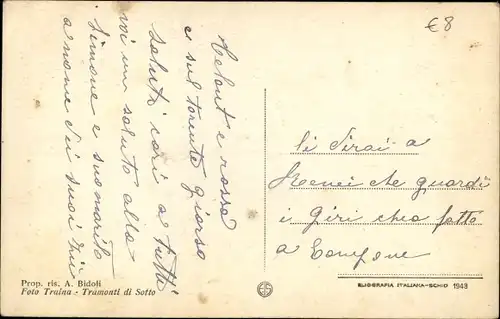 € 8
Celout e rosso
e sul torente giorso
saluti cari a tutti
voi un saluto alla
Simone e suo marito
a nome dei suoi
li dirai a
che guardi
i giri che a fatto
a
Prop. ris. A. Bidoli
Foto Traina - Tramonti di Sotto
ELIOGRAFIA ITALIANA-SCHIO 1943